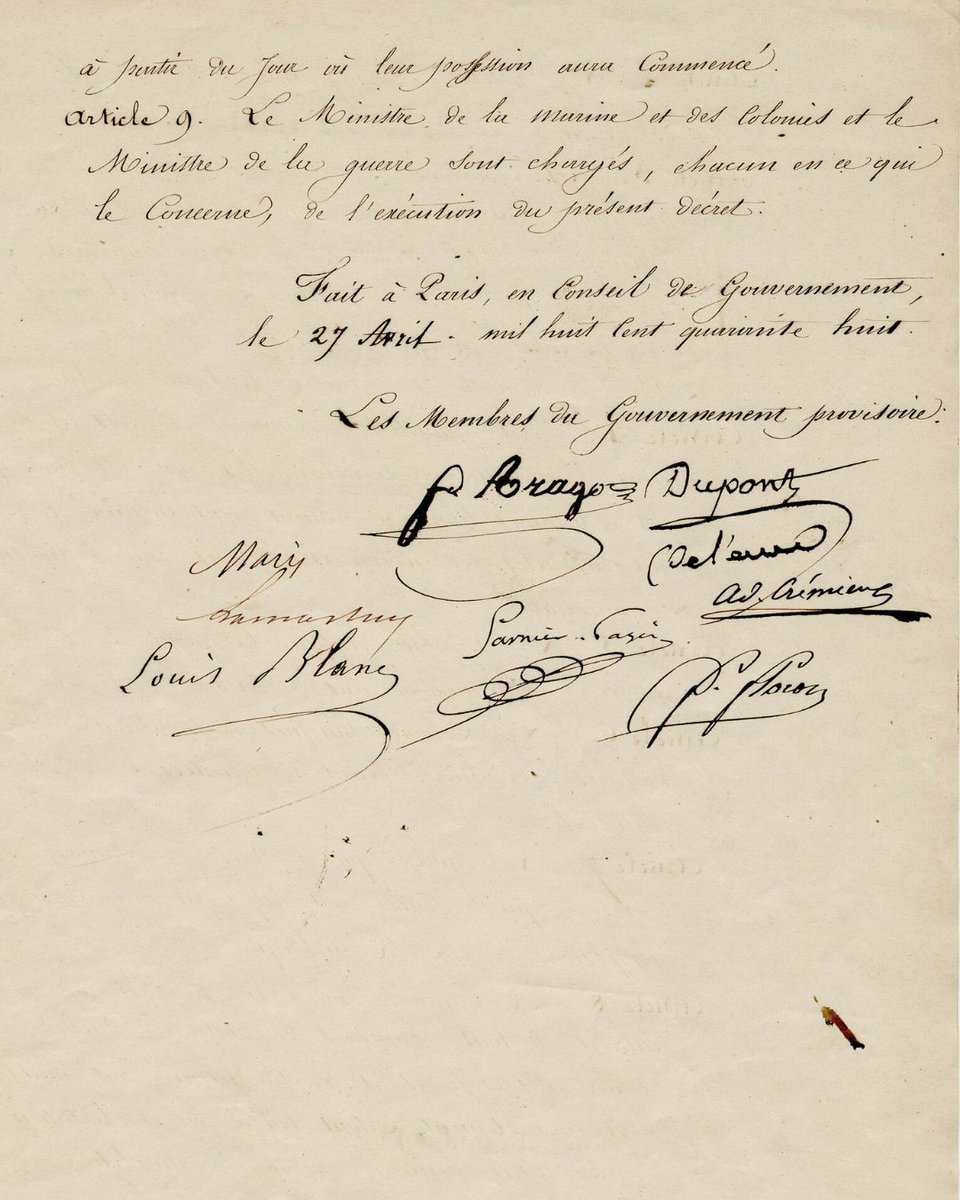 à partir du Jour où leur possession aura Commencé.
Article 9. Le Ministre de la marine et des Colonies et le
Ministre de la guerre sont chargés, chacun en ce qui
le Concerne, de l'exécution du présent décret.
Fait à Paris, en Conseil de Gouvernement,
le 27 Avril. mil huit Cent quarante huit.
Les Membres du Gouvernement provisoire:
F. Arago Dupont
Marie
de l'eure
Ad. Crémieux
Lamartine
Garnier-Pagès
Louis Blanc
F. Flocon